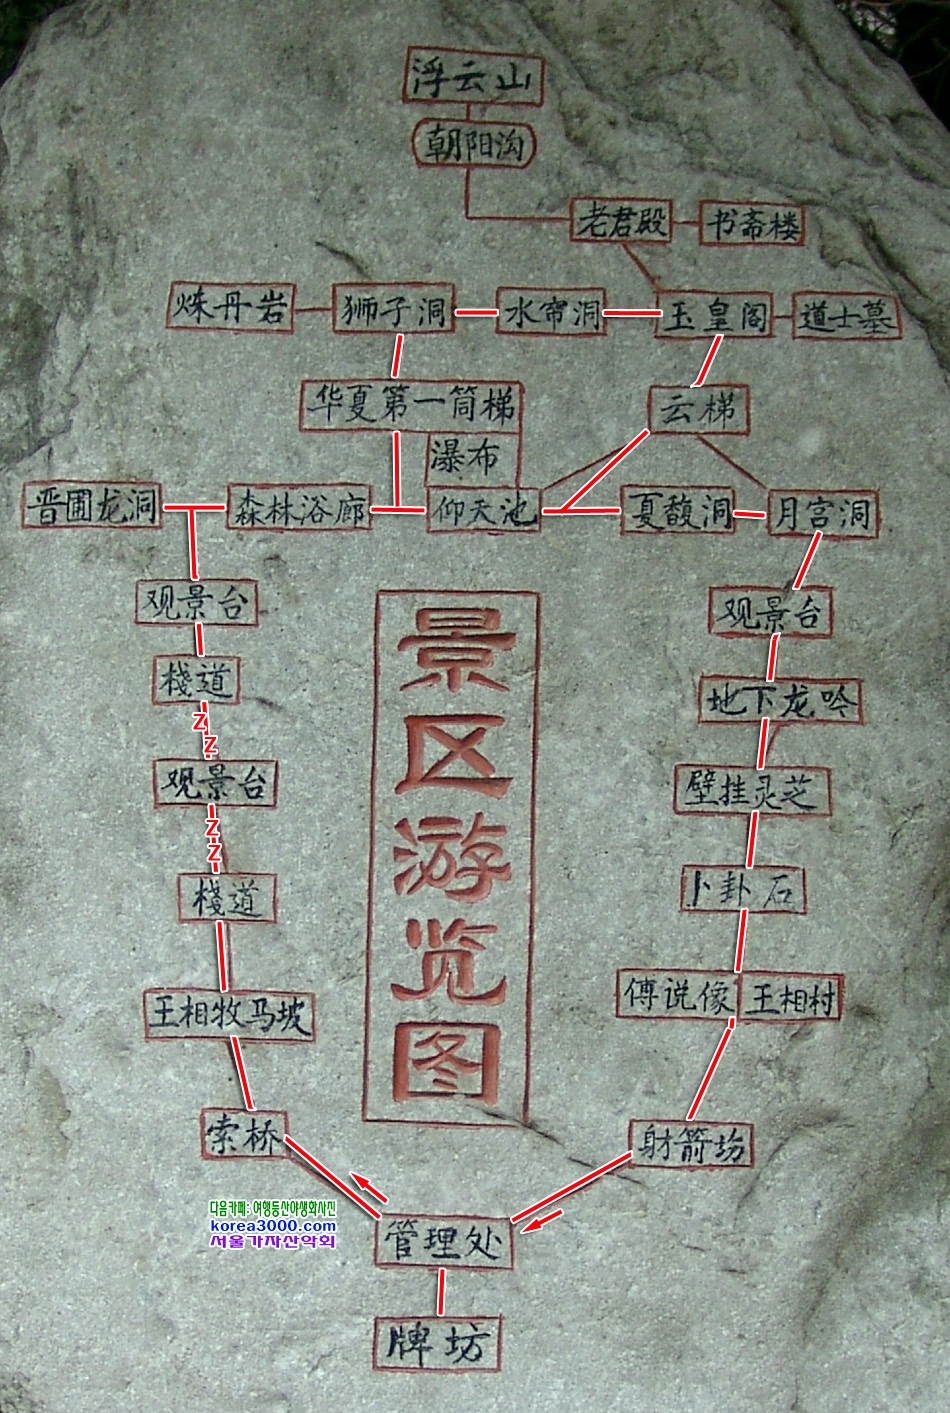 浮云山
朝阳沟
老君殿 书斋楼
炼丹岩 狮子洞 水帘洞 玉皇阁 道士墓
华夏第一筒梯 云梯
瀑布
晋圃龙洞 森林浴廊 仰天池 夏馥洞 月宫洞
观景台 观景台
栈道 地下龙吟
观景台 壁挂灵芝
栈道 卜卦石
王相牧马坡 傅说像 王相村
索桥 射箭坊
景区游览图
다음카페: 여행등산야생화사진
korea3000.com
서울가자산악회
管理处
牌坊